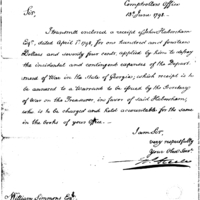 Comptrollers Office
13th June 1798.
Sir,
I transmit enclosed a receipt of John Habersham
Esqr. dated April 5th 1798, for One hundred and fourteen
Dollars and seventy four cents, applied by him to defray
the incidental and contingent expences of the Depart-
ment of War in the State of Georgia; which receipt is to
be annexed to a Warrant to be signed by the Secretary
of War on the Treasurer, in favor of said Habersham;
who is to be charged and held accountable for the same
in the books of your Office.
I am Sir,
very respectfully
Your Obed Servt.
William Simmons Esqr.